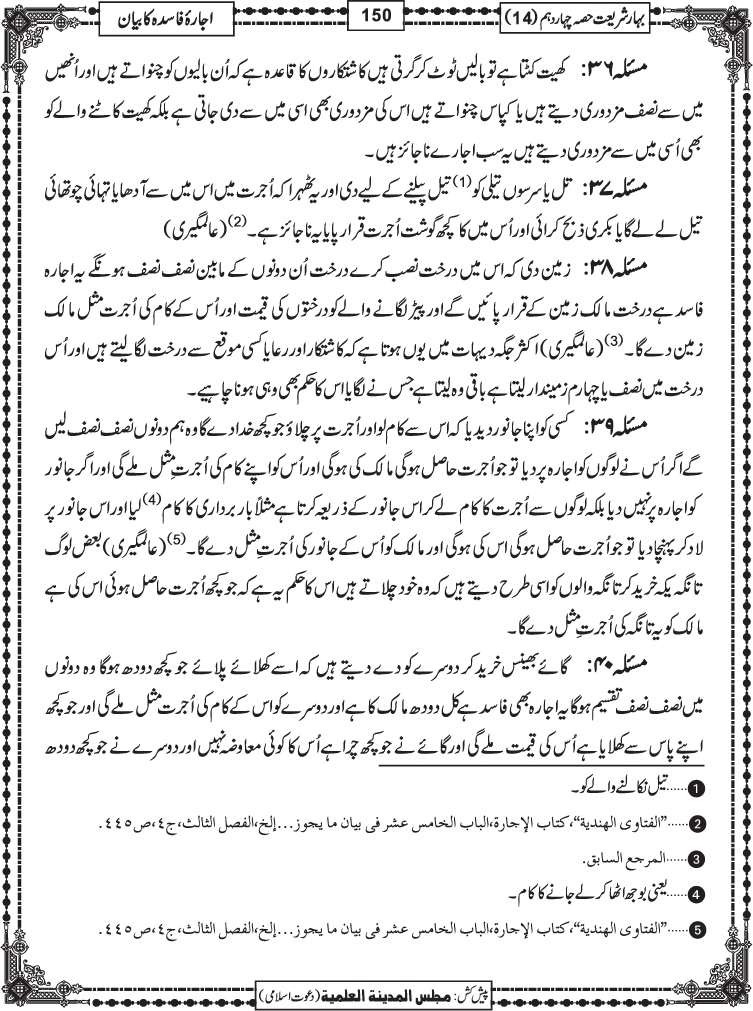 بہارِ شریعت حصہ چہاردہم (14)
150
اجارۂ فاسدہ کا بیان
مسئلہ ۳۶: کھیت کٹتا ہے تو بالیں ٹوٹ کر گرتی ہیں کاشتکاروں کا قاعدہ ہے کہ اُن بالیوں کو چنواتے ہیں اور اُنھیں
میں سے نصف مزدوری دیتے ہیں یا کپاس چنواتے ہیں اس کی مزدوری بھی اسی میں سے دی جاتی ہے بلکہ کھیت کاٹنے والے کو
بھی اُسی میں سے مزدوری دیتے ہیں یہ سب اجارے ناجائز ہیں۔
مسئلہ ۳۷: تل یا سرسوں تیلی کو(1) تیل پیلنے کے لیے دی اور یہ ٹھہرا کہ اُجرت میں اس میں سے آدھا یا تہائی چوتھائی
تیل لے لے گا یا بکری ذبح کرائی اور اُس میں کا کچھ گوشت اُجرت قرار پایا یہ ناجائز ہے۔(2) (عالمگیری)
مسئلہ ۳۸: زمین دی کہ اس میں درخت نصب کرے درخت اُن دونوں کے مابین نصف نصف ہونگے یہ اجارہ
فاسد ہے درخت مالک زمین کے قرار پائیں گے اور پیڑ لگانے والے کو درختوں کی قیمت اور اُس کے کام کی اُجرت مثل مالک
زمین دے گا۔(3) (عالمگیری) اکثر جگہ دیہات میں یوں ہوتا ہے کہ کاشتکار اور رعایا کسی موقع سے درخت لگا لیتے ہیں اور اُس
درخت میں نصف یا چہارم زمیندار لیتا ہے باقی وہ لیتا ہے جس نے لگایا اس کا حکم بھی وہی ہونا چاہیے۔
مسئلہ ۳۹: کسی کو اپنا جانور دیدیا کہ اس سے کام لو اور اُجرت پر چلاؤ جو کچھ خدا دے گا وہ ہم دونوں نصف نصف لیں
گے اگر اُس نے لوگوں کو اجارہ پر دیا تو جو اُجرت حاصل ہوگی مالک کی ہوگی اور اُس کو اپنے کام کی اُجرتِ مثل ملے گی اور اگر جانور
کو اجارہ پر نہیں دیا بلکہ لوگوں سے اُجرت کا کام لے کر اس جانور کے ذریعہ کرتا ہے مثلاً بار برداری کا کام(4) لیا اور اس جانور پر
لاد کر پہنچا دیا تو جو اُجرت حاصل ہوگی اس کی ہوگی اور مالک کو اُس کے جانور کی اُجرتِ مثل دے گا۔(5) (عالمگیری) بعض لوگ
تانگہ یکہ خرید کر تانگہ والوں کو اسی طرح دیتے ہیں کہ وہ خود چلاتے ہیں اس کا حکم یہ ہے کہ جو کچھ اُجرت حاصل ہوئی اس کی ہے
مالک کو یہ تانگہ کی اُجرتِ مثل دے گا۔
مسئلہ ۴۰: گائے بھینس خرید کر دوسرے کو دے دیتے ہیں کہ اسے کھلائے پلائے جو کچھ دودھ ہوگا وہ دونوں
میں نصف نصف تقسیم ہوگا یہ اجارہ بھی فاسد ہے کل دودھ مالک کا ہے اور دوسرے کو اس کے کام کی اُجرت مثل ملے گی اور جو کچھ
اپنے پاس سے کھلایا ہے اُس کی قیمت ملے گی اور گائے نے جو کچھ چرا ہے اُس کا کوئی معاوضہ نہیں اور دوسرے نے جو کچھ دودھ
1......تیل نکالنے والے کو۔
2......"الفتاوی الهندية"،كتاب الإجارة،الباب الخامس عشر فى بيان ما يجوز...إلخ،الفصل الثالث،ج٤،ص٤٤٥.
3......المرجع السابق.
4......یعنی بوجھ اٹھا کر لے جانے کا کام۔
5......"الفتاوی الهندية"،كتاب الإجارة،الباب الخامس عشر فى بيان ما يجوز...إلخ،الفصل الثالث،ج٤،ص٤٤٥.
پیش کش: مجلس المدينة العلمية (دعوت اسلامی)